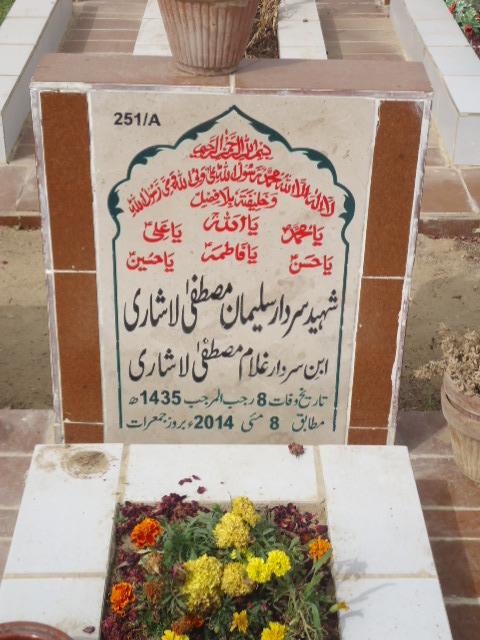 251/A
بسم اللہ الرحمن الرحیم
لا الہ الا اللہ محمد رسول اللہ علی ولی اللہ وصی رسول اللہ
و خلیفتہ بلا فصل
یا اللہ
یا محمدؐ یا علیؑ
یا فاطمہؑ
یا حسنؑ یا حسینؑ
شہید سردار سلیمان مصطفیٰ لاشاری
ابن سردار غلام مصطفیٰ لاشاری
تاریخ وفات 8 رجب المرجب 1435ھ
مطابق 8 مئی 2014ء بروز جمعرات